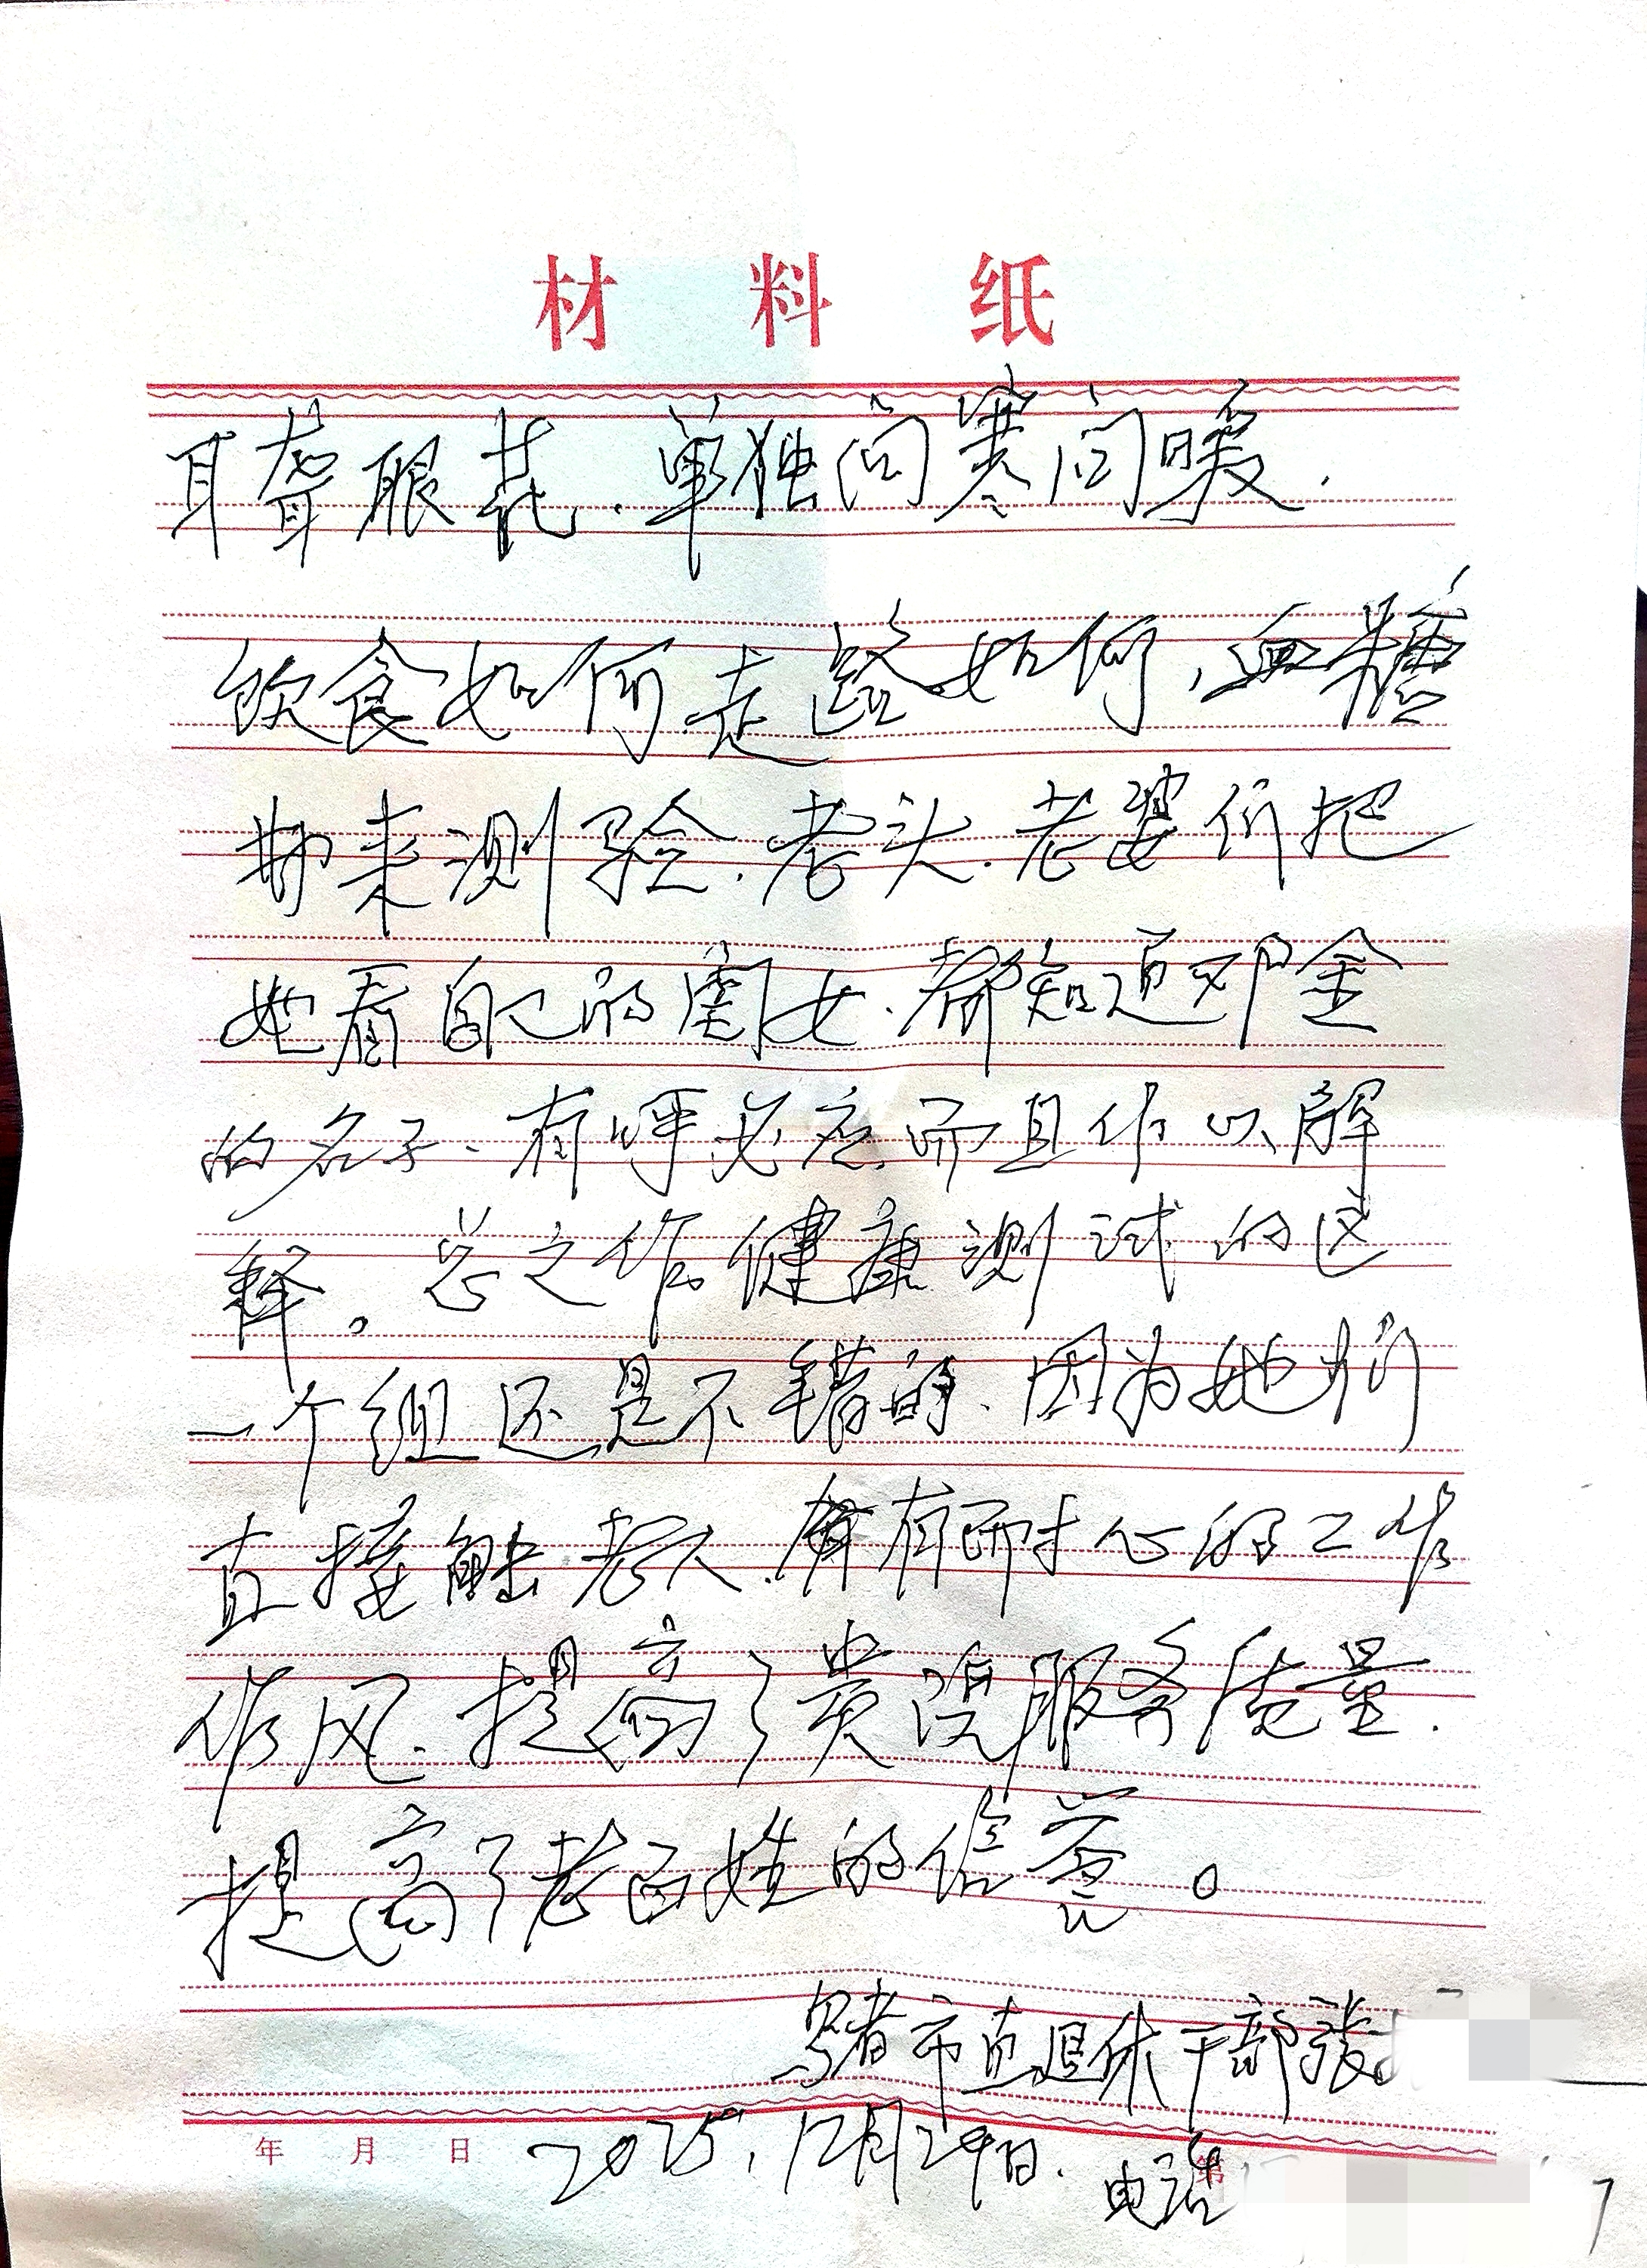 材料纸
耳聋眼花.单独问寒问暖.
饮食如何.走路如何,血糖
拿来测验.老头.老婆们把
她看自己的闺女.都知道邓金
的名子.有呼必应.而且作以解
释。总之作健康测试的这
一个组还是不错的、因为她们
直接触老人.拥有耐心的工作
作风.提高了贵院服务质量.
提高了老百姓的信誉。
市直退休干部张
年 月 日 2025.12月29日.
电话 第 7